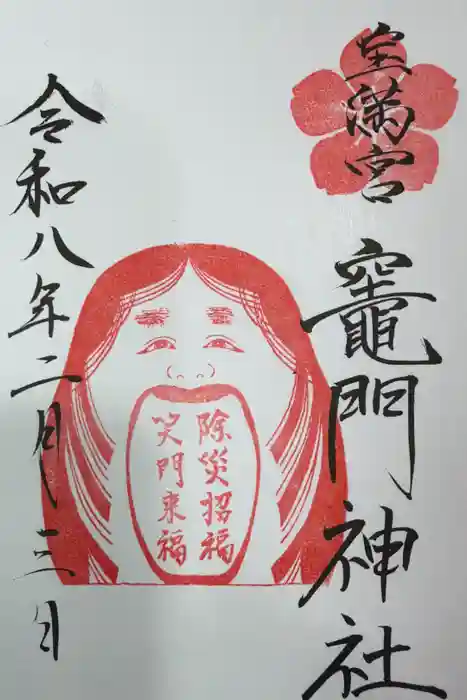 宝満宮
竈門神社
除災招福
笑門来福
令和八年二月三日